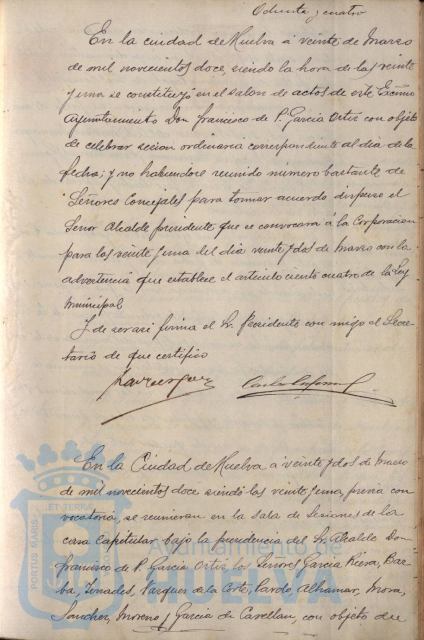 Ochenta y cuatro
En la ciudad de Huelva á veinte de Marzo
de mil novecientos doce, siendo la hora de las veinte
y una se constituyó en el salon de actos de este Excmo
Ayuntamiento Don Francisco de P. García Ortiz con objeto
de celebrar sesion ordinaria correspondiente al dia de la
fecha; y no habiendose reunido número bastante de
Señores Concejales para tommar acuerdo dispuso el
Señor Alcalde presidente que se convocara á la Corporacion
para las veinte y una del dia veinte y dos de Marzo con la
advertencia que establece el articulo ciento cuatro de la Ley
Municipal
Y de ser asi firma el Sr. Presidente con migo el Secre-
tario de que certifico
En la Ciudad de Huelva á veinte y dos de Marzo
de mil novecientos doce siendo las veinte y una, previa con
vocatoria, se reunieron en la sala de Sesiones de la
casa Capitular bajo la presidencia del Sr. Alcalde Don
Francisco de P. García Ortiz los Señores García Riera, Bar-
ba, Tenades, Vazquez de la Corte, Pardo, Alhamar, Mora,
Sanchez, Moreno y García de Castellan, con objeto de
PORTUS MARIS
ET TERRA
Ayuntamiento de
HUELVA